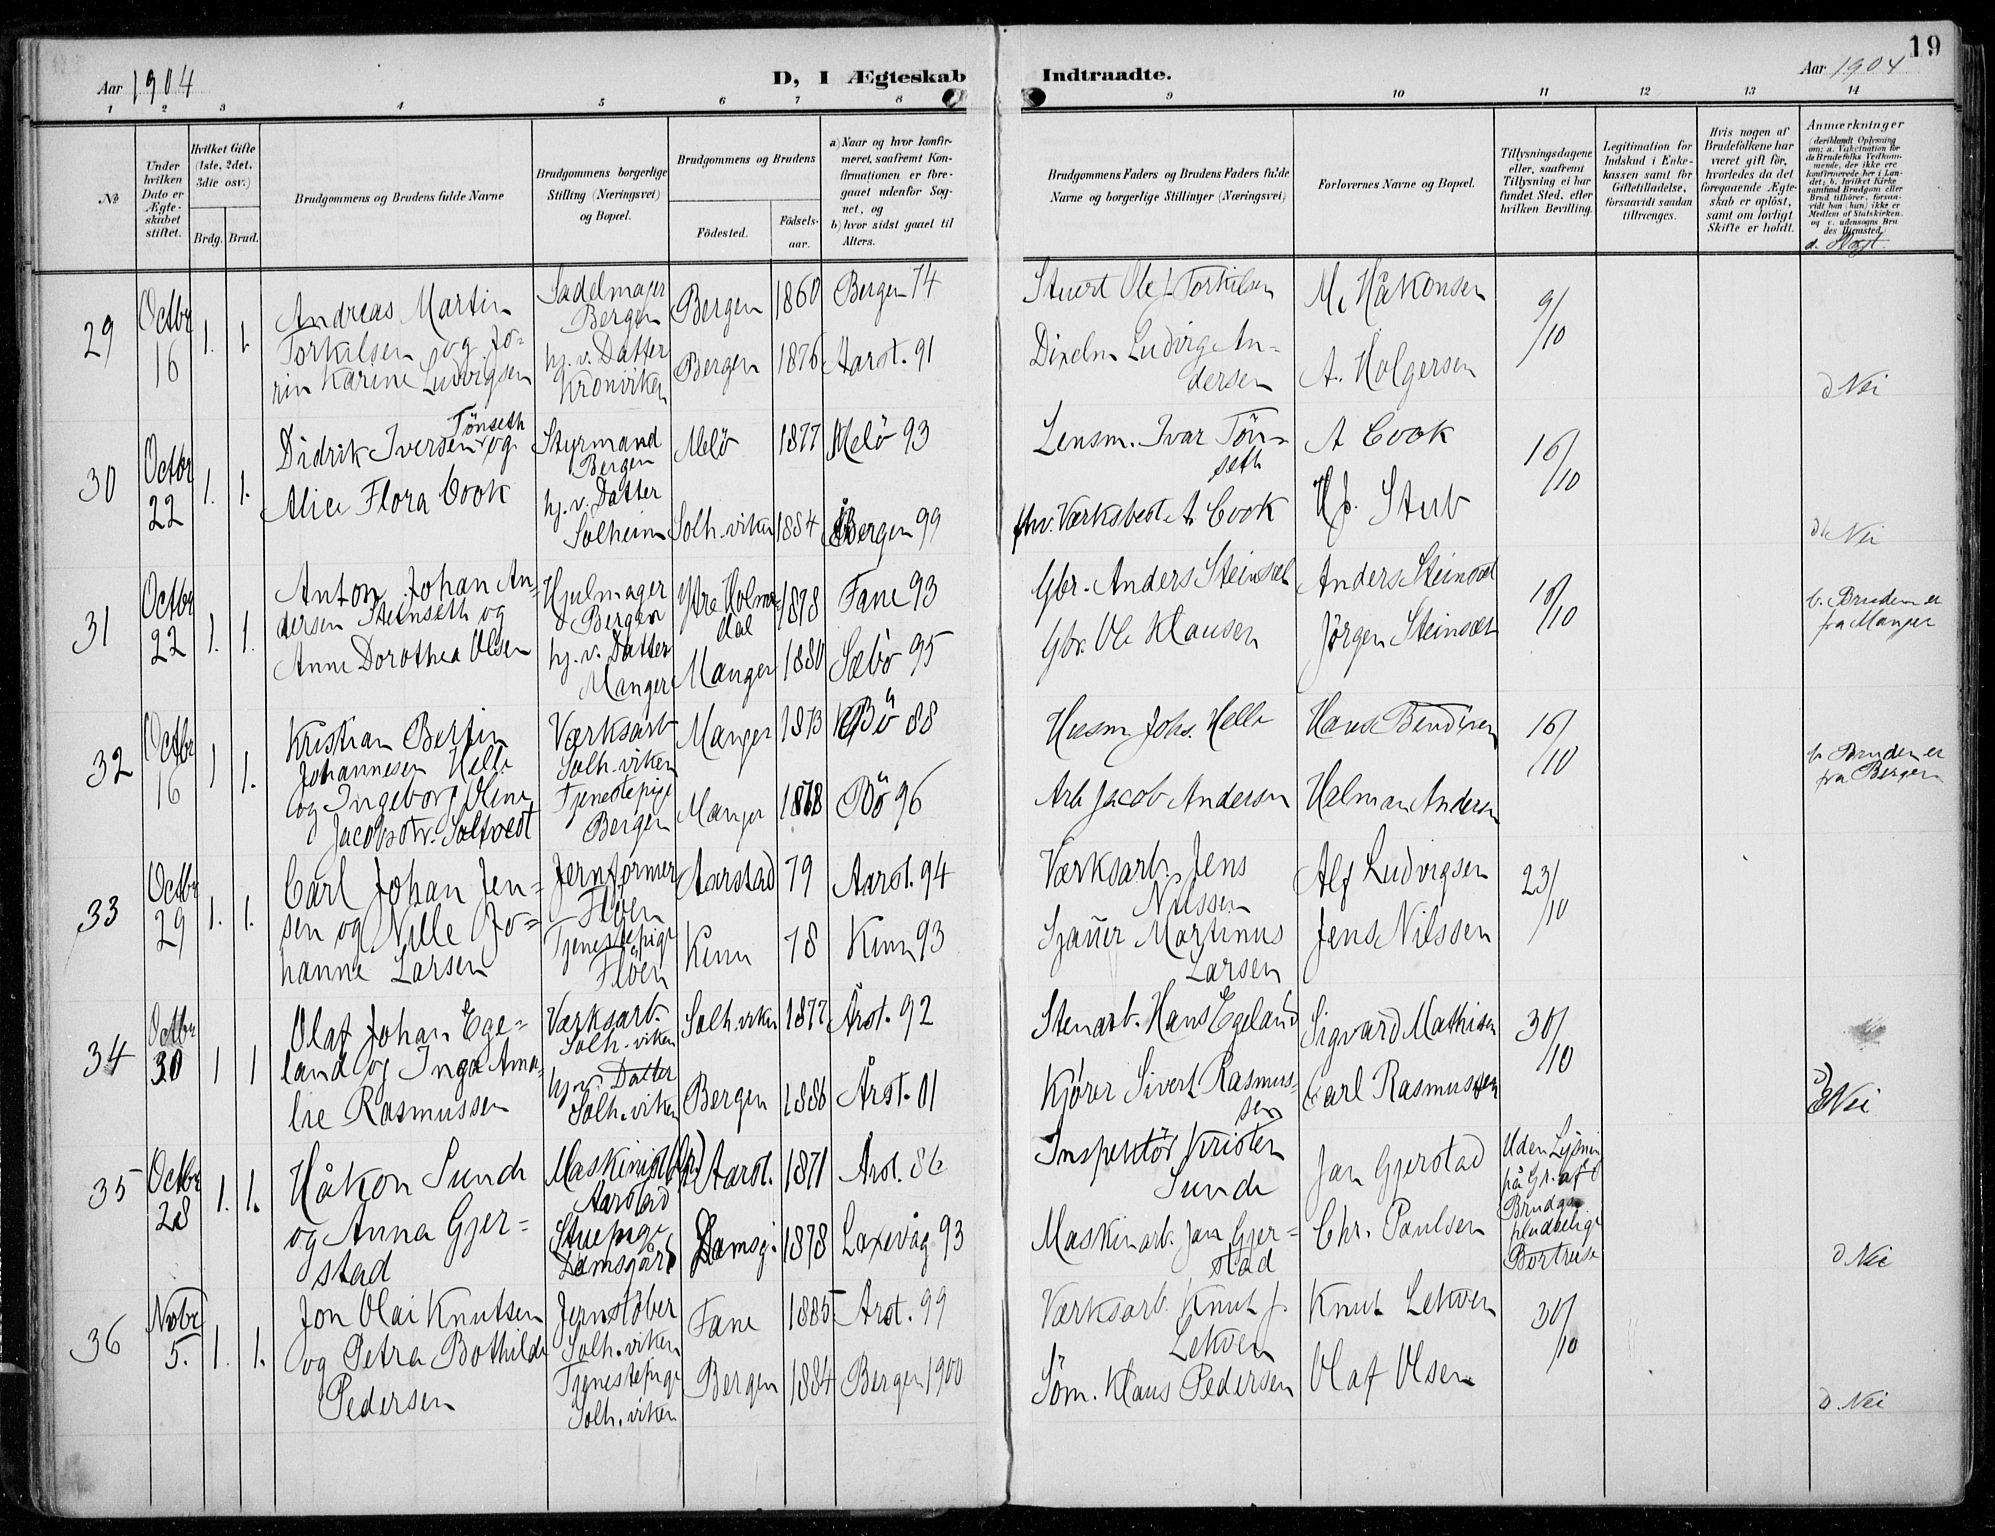 19
Aar 1904
D, I Ægteskab
Indtraadte.
Aar 1904
1 2 3 4 5 6 7 8 9 10 11 12 13 14
No
Under hvilken Dato er Ægteskabet stiftet.
Hvilket Gifte (1ste, 2det, 3die osv.)
Brdg. Brud.
Brudgommens og Brudens fulde Navne
Brudgommens borgerlige Stilling (Næringsvei) og Bopæl.
Brudgommens og Brudens
Födested.
Födselsaar.
a) Naar og hvor konfirmeret, saafremt Konfirmationen er foregaaet udenfor Sognet, og
b) hvor sidst gaaet til Alters.
Brudgommens Faders og Brudens Faders fulde Navne og borgerlige Stillinger (Næringsvei)
Forlovernes Navne og Bopæl.
Tillysningsdagene eller, saafremt Tillysning ei har fundet Sted, efter hvilken Bevilling.
Legitimation for Indskud i Enkekassen samt for Giftetilladelse, forsaavidt saadan tiltrænges.
Hvis nogen af Brudefolkene har været gift för, hvorledes da det foregaaende Ægteskab er oplöst, samt om lovligt Skifte er holdt.
Anmærkninger (deriblandt Oplysning om: a. Vakcination for de Brudefolks Vedkommende, der ikke ere konfirmerede her i Landet; b. hvilket Kirkesamfund Brudgom eller Brud tilhörer, forsaavidt han (hun) ikke er Medlem af Statskirken, og c. udensogns Brudes Hjemsted.)
d. Slægt
29
Octbr 16
1. 1.
Andreas Martin
Torkilsen og Jo-
rin Karine Ludvigsen
Sadelmager
Bergen
hj. v. Datter
Kronviken
Bergen 1860 Bergen 74
Bergen 1876 Aarst. 91
Stuert Ole J. Torkilsen
Dixelm Ludvig An-
dersen
M. Håkonsen
A. Holgersen
9/10
d Nei
30
Octbr 22
1. 1.
Tönseth
Didrik Iversen og
Alice Flora Cook
Styrmand
Bergen
hj. v. Datter
Solheim
Melö 1877 Melö 93
Solh. viken 1884 Bergen 99
Lensm. Ivar Tön-
seth
fhv. Værksbest. A. Cook
A Cook
Stub
16/10
d. Nei
31
Octbr 22
1. 1.
Anton Johan An-
dersen Steinseth og
Anne Dorothea Olsen
Hjulmager
Bergen
hj. v. Datter
Manger
Ytre Holme-
dal 1878 Fane 93
Manger 1880 Sæbö 95
Gbr. Anders Steinsæt
Gbr. Ole Klausen
Anders Steinsæt
Jörgen Steinsæt
10
c. Bruden er
fra Manger
32
Octbr 16
1 1.
Kristian Bertin
Johannesen Helle
og Ingeborg Oline
Jacobsdtr. Soltvedt
Værksarb
Solh. viken
Tjenestepige
Bergen
Manger 1873 Bö 88
Manger 1878 Bö 96
Husm. Johs. Helle
Arb Jacob Andersen
Hans Bendixen
Halman Andersen
16/10
c. Bruden er
fra Bergen
33
Octbr 29
1. 1.
Carl Johan Jen-
sen og Nille Jo-
hanne Larsen
Jernformer
Flöen
Tjenestepige
Flöen
Aarstad 79 Aarst. 94
Kinn 78 Kinn 93
Værksarb. Jens
Nilssen
Sjauer Martinus
Larsen
Alf Ludvigsen
Jens Nilssen
23/10
34
Octbr 30
1 1
Olaf Johan Ege-
land og Inga Ama-
lie Rasmussen
Værksarb.
Solh. viken
hj. v. Datter
Solh. viken
Solh. viken 1877 Årst. 92
Bergen 1886 Årst. 01
Stenarb. Hans Egeland
Kjörer Sivert Rasmus-
sen
Sigvard Mathisen
Carl Rasmussen
30/10
d) Nei
35
Octbr 28
1. 1.
Håkon Sunde
og Anna Gjer-
stad
Maskinist
Aarstad
Stuepige
Damsgård
Aarst. 1871 Årst. 86
Damsg. 1878 Laxevåg 93
Inspektör Kristen
Sunde
Maskinarb. Jan Gjer-
stad
Jan Gjerstad
Chr. Paulsen
Uden Lysning
på Gr. af
Brudgom
pludselige
Bortreise
d Nei
36
Novbr 5.
1. 1.
Jon Olai Knutsen
og Petra Bothilde
Pedersen
Jernstöber
Solh. viken
Tjenestepige
Solh. viken
Fane 1885 Årst. 99
Bergen 1884 Bergen 1900
Værksarb. Knut J.
Lekven
Söm. Klaus Pedersen
Knut Lekven
Olaf Olsen
30/10
d. Nei